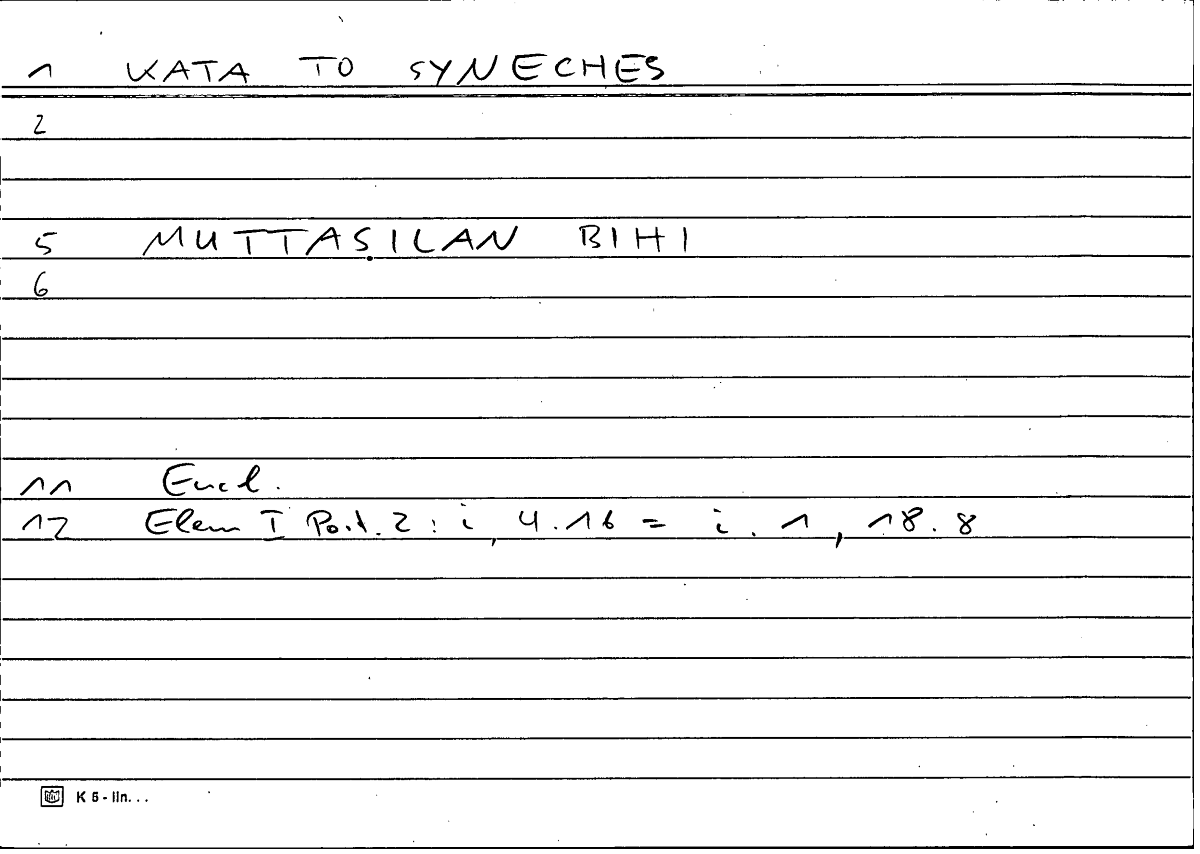 1 KATA TO SYNECHES
2
5 MUTTAṢILAN BIHI
6
11 Eucl.
12 Elem I Post. 2 : i, 4.16 = i. 1, 18. 8
K 5 - lin...